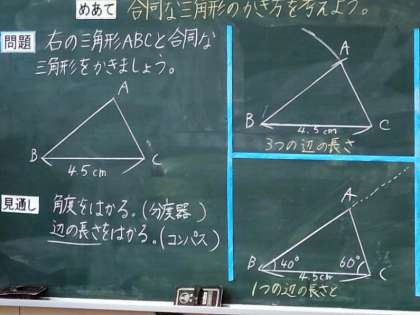 めあて 合同な三角形のかき方を考えよう。
問題 右の三角形ABCと合同な
三角形をかきましょう。
A
B
C
4.5cm
見通し 角度をはかる。(分度器)
辺の長さをはかる。(コンパス)
A
B
C
4.5cm
3つの辺の長さ
A
B
40°
60°
C
4.5cm
1つの辺の長さと